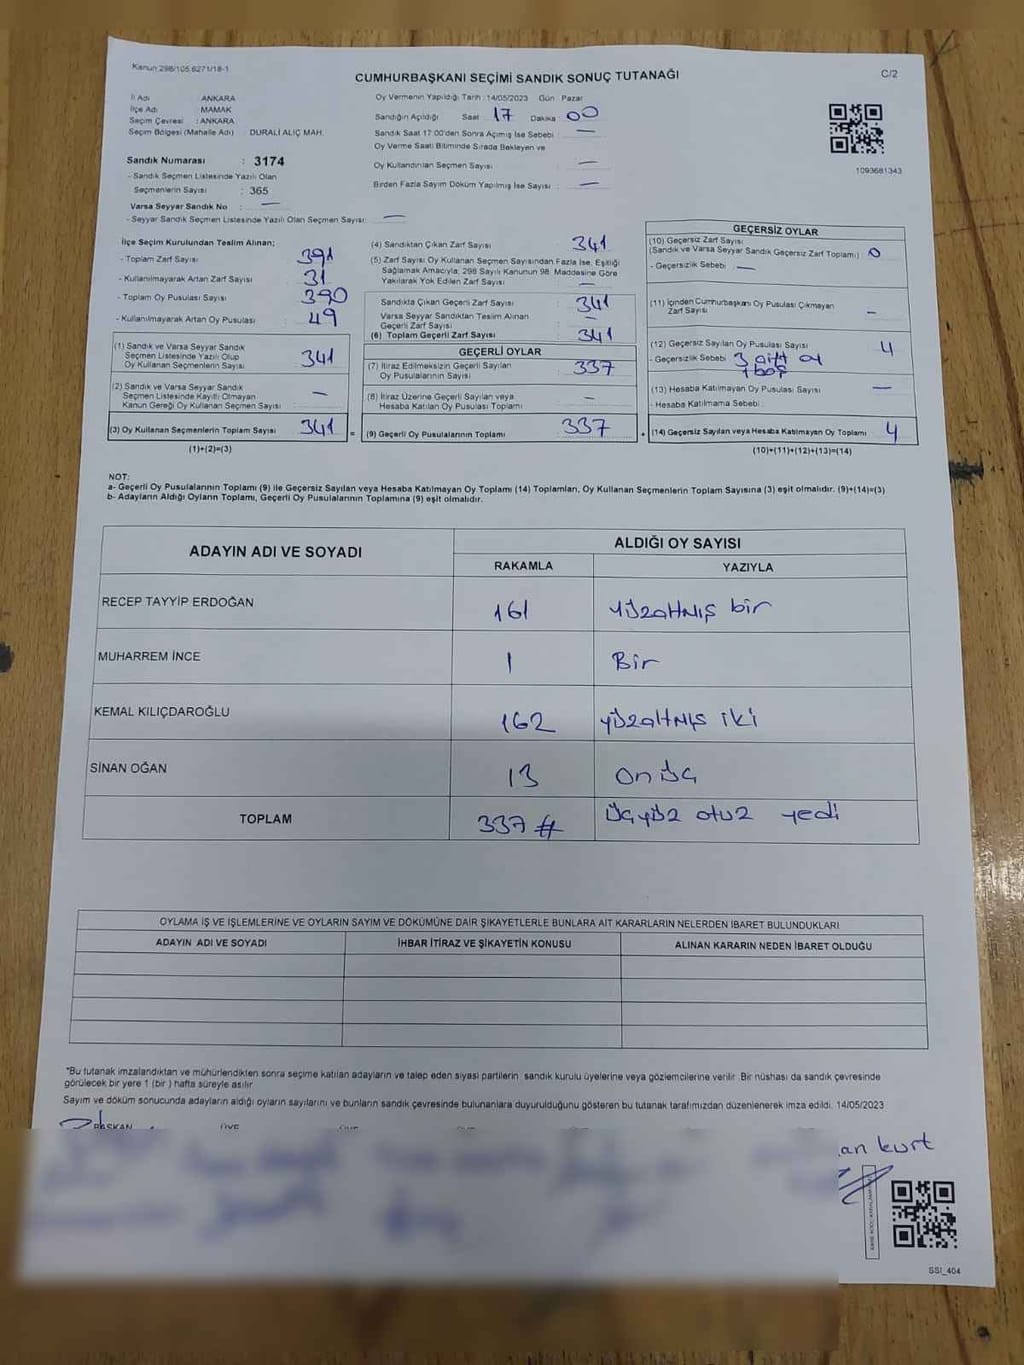 Kanun 298/105.6271/18-1
CUMHURBAŞKANI SEÇİMİ SANDIK SONUÇ TUTANAĞI
C/2
İl Adı ANKARA
İlçe Adı MAMAK
Seçim Çevresi : ANKARA
Seçim Bölgesi (Mahalle Adı) : DURALİ ALIÇ MAH.
Sandık Numarası : 3174
- Sandık Seçmen Listesinde Yazılı Olan
Seçmenlerin Sayısı : 365
Varsa Seyyar Sandık No : —
- Seyyar Sandık Seçmen Listesinde Yazılı Olan Seçmen Sayısı: —
Oy Vermenin Yapıldığı Tarih : 14/05/2023 Gün : Pazar
Sandığın Açıldığı Saat : 17 Dakika : 00
Sandık Saat 17:00'den Sonra Açılmış İse Sebebi : —
Oy Verme Saati Bitiminde Sırada Bekleyen ve
Oy Kullandırılan Seçmen Sayısı : —
Birden Fazla Sayım Döküm Yapılmış İse Sayısı : —
1093681343
İlçe Seçim Kurulundan Teslim Alınan;
- Toplam Zarf Sayısı : 391
- Kullanılmayarak Artan Zarf Sayısı : 31
- Toplam Oy Pusulası Sayısı : 390
- Kullanılmayarak Artan Oy Pusulası : 49
(1) Sandık ve Varsa Seyyar Sandık
Seçmen Listesinde Yazılı Olup
Oy Kullanan Seçmenlerin Sayısı : 341
(2) Sandık ve Varsa Seyyar Sandık
Seçmen Listesinde Kayıtlı Olmayan
Kanun Gereği Oy Kullanan Seçmen Sayısı : —
(3) Oy Kullanan Seçmenlerin Toplam Sayısı : 341 =
(1)+(2)=(3)
(4) Sandıktan Çıkan Zarf Sayısı : 341
(5) Zarf Sayısı Oy Kullanan Seçmen Sayısından Fazla İse, Eşitliği
Sağlamak Amacıyla, 298 Sayılı Kanunun 98. Maddesine Göre
Yakılarak Yok Edilen Zarf Sayısı : —
Sandıkta Çıkan Geçerli Zarf Sayısı : 341
Varsa Seyyar Sandıktan Teslim Alınan
Geçerli Zarf Sayısı : —
(6) Toplam Geçerli Zarf Sayısı : 341
GEÇERLİ OYLAR
(7) İtiraz Edilmeksizin Geçerli Sayılan
Oy Pusulalarının Sayısı : 337
(8) İtiraz Üzerine Geçerli Sayılan veya
Hesaba Katılan Oy Pusulası Toplamı : —
(9) Geçerli Oy Pusulalarının Toplamı : 337 +
GEÇERSİZ OYLAR
(10) Geçersiz Zarf Sayısı
(Sandık ve Varsa Seyyar Sandık Geçersiz Zarf Toplamı) : 0
- Geçersizlik Sebebi : —
(11) İçinden Cumhurbaşkanı Oy Pusulası Çıkmayan
Zarf Sayısı : —
(12) Geçersiz Sayılan Oy Pusulası Sayısı : 4
- Geçersizlik Sebebi : 3 çift oy
1 boş
(13) Hesaba Katılmayan Oy Pusulası Sayısı : —
- Hesaba Katılmama Sebebi :
(14) Geçersiz Sayılan veya Hesaba Katılmayan Oy Toplamı : 4
(10)+(11)+(12)+(13)=(14)
NOT:
a- Geçerli Oy Pusulalarının Toplamı (9) ile Geçersiz Sayılan veya Hesaba Katılmayan Oy Toplamı (14) Toplamları, Oy Kullanan Seçmenlerin Toplam Sayısına (3) eşit olmalıdır. (9)+(14)=(3)
b- Adayların Aldığı Oyların Toplamı, Geçerli Oy Pusulalarının Toplamına (9) eşit olmalıdır.
ADAYIN ADI VE SOYADI ALDIĞI OY SAYISI
RAKAMLA YAZIYLA
RECEP TAYYİP ERDOĞAN 161 yüzaltmış bir
MUHARREM İNCE 1 Bir
KEMAL KILIÇDAROĞLU 162 yüzaltmış iki
SİNAN OĞAN 13 on üç
TOPLAM 337 # üçyüz otuz yedi
OYLAMA İŞ VE İŞLEMLERİNE VE OYLARIN SAYIM VE DÖKÜMÜNE DAİR ŞİKAYETLERLE BUNLARA AİT KARARLARIN NELERDEN İBARET BULUNDUKLARI
ADAYIN ADI VE SOYADI İHBAR İTİRAZ VE ŞİKAYETİN KONUSU ALINAN KARARIN NEDEN İBARET OLDUĞU
*Bu tutanak imzalandıktan ve mühürlendikten sonra seçime katılan adayların ve talep eden siyasi partilerin sandık kurulu üyelerine veya gözlemcilerine verilir. Bir nüshası da sandık çevresinde
görülecek bir yere 1 (bir) hafta süreyle asılır
Sayım ve döküm sonucunda adayların aldığı oyların sayılarını ve bunların sandık çevresinde bulunanlara duyurulduğunu gösteren bu tutanak tarafımızdan düzenlenerek imza edildi. 14/05/2023
BAŞKAN ÜYE ÜYE
an kurt
SSI_404